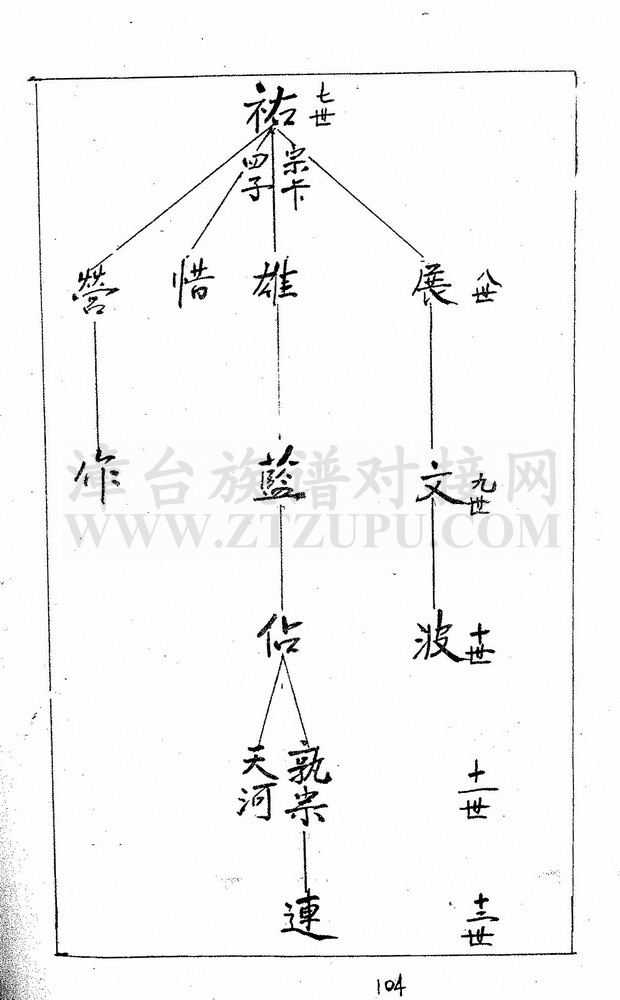 祐 七世
宗卡
四子
展 八世
雄
惜
營
文 九世
藍
作
波 十世
佔
十一世
孰宗
天河
連 十二世
104
漳台族谱对接网
WWW.ZTZUPU.COM